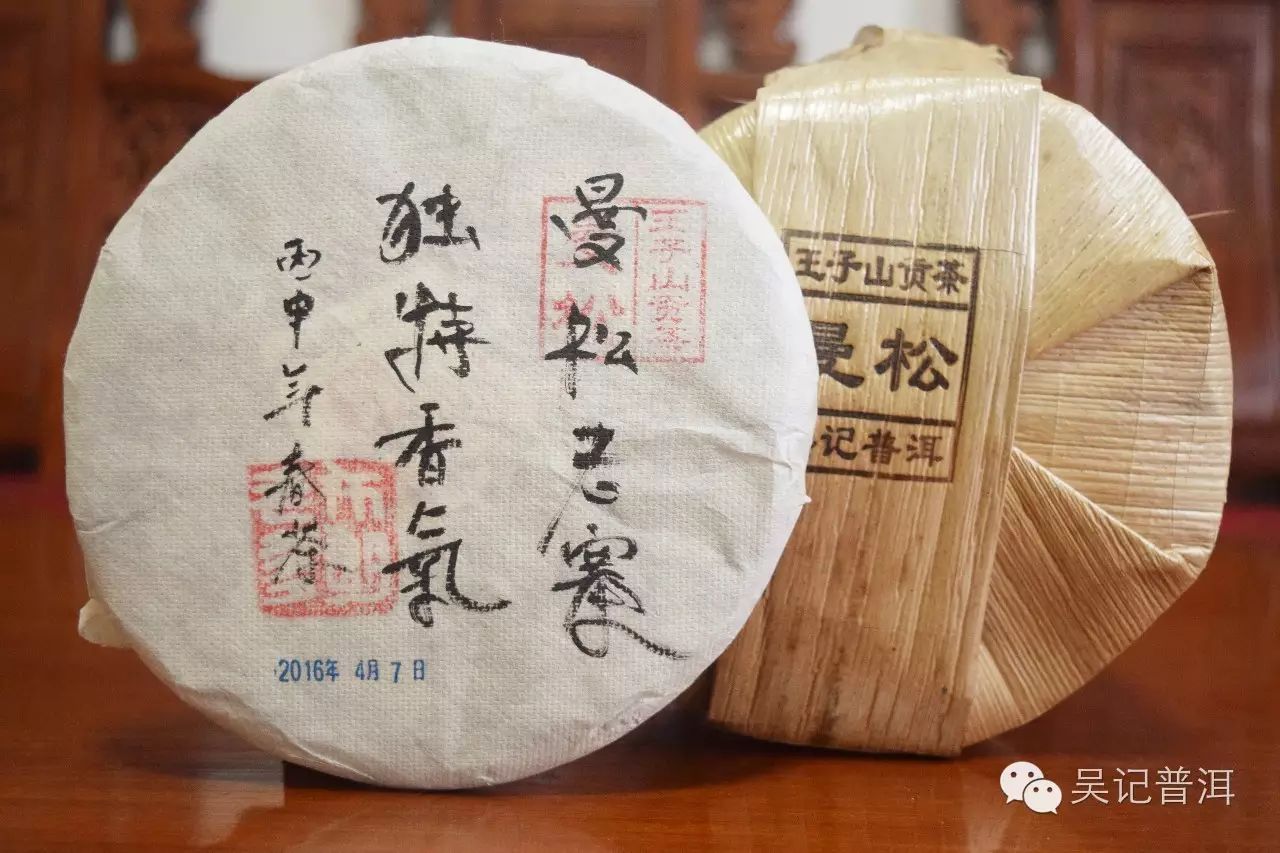 曼松老寨
独特香氣
丙申年春茶
王子山贡茶
松
2016年 4月 7日
王子山贡茶
曼松
记普洱
吴记普洱